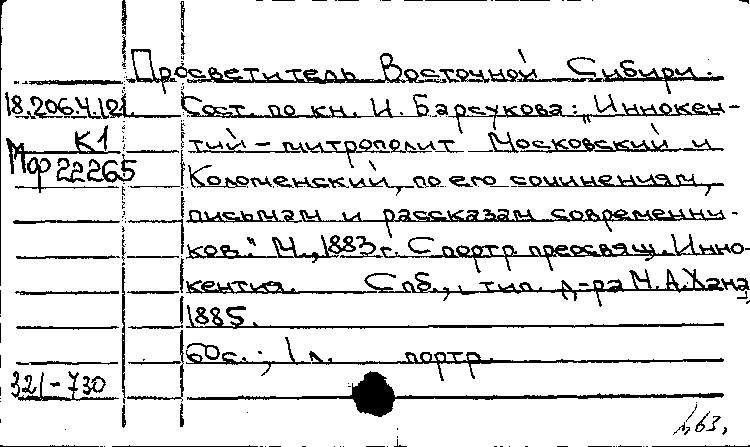 Просветитель Восточной Сибири.
18.206.4.121. Сост. по кн. И. Барсукова: „Иннокен-
К1 тий – митрополит Московский и
Мор 22265 Коломенский, по его сочинениям,
письмам и рассказам современни-
ков." М., 1883 г. С портр. преосвящ. Инно-
кентия. Спб., тип. д-ра М.А.Хана,
1885.
60с.; 1 л. портр.
321-730
63,